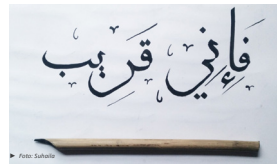 فَإِنِّي قَرِيب
► Foto: Suhaila